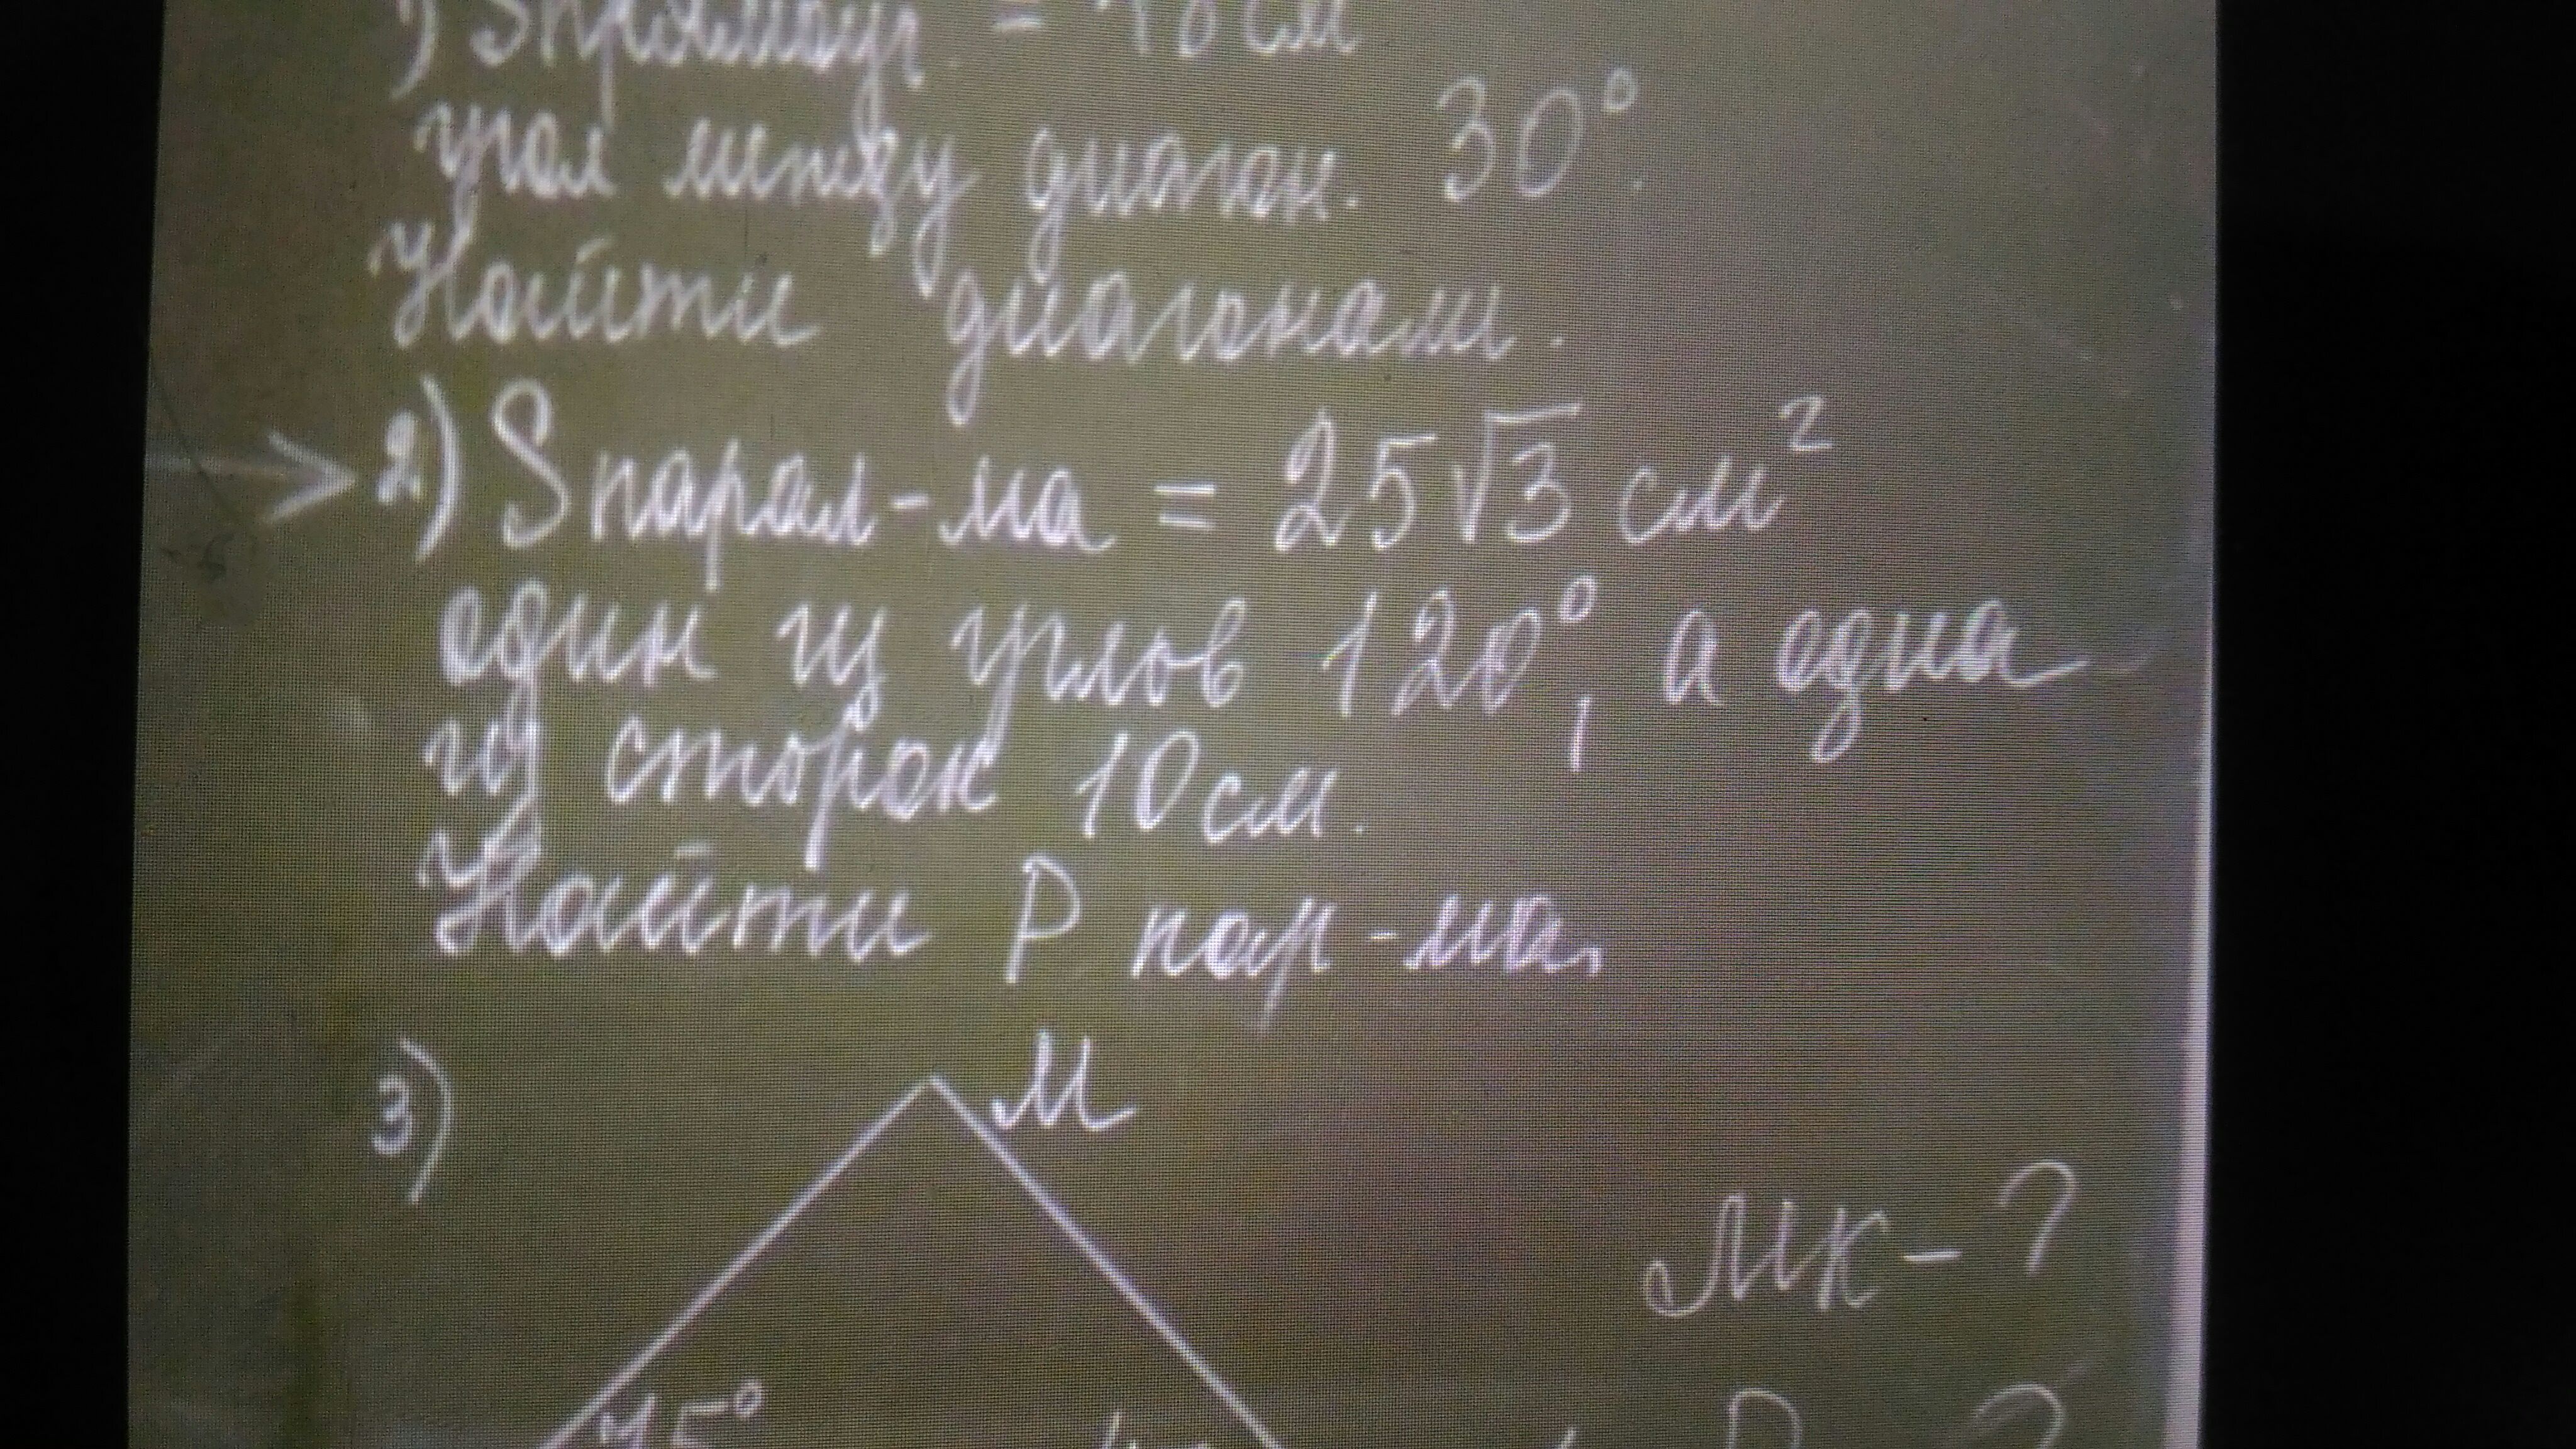 1) Sпрямоуг. = 18 см
угол между диагон. 30°.
Найти диагонали.
→ 2) Sпарал-ма = 25√3 см²
один из углов 120°, а одна
из сторон 10 см.
Найти P пар-ма.
3)
M
MK - ?
45°
?